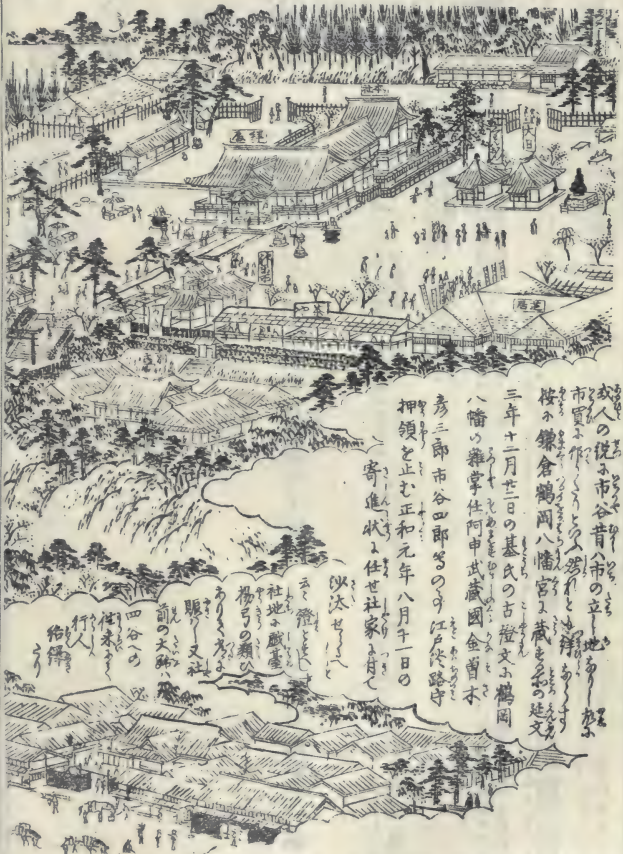 本社
拝殿
大日
茶や
茶屋
或人の説に市谷昔ハ市の立し地なりし故に
市買に作るといふ然れとも詳ならす
按に鎌倉鶴岡八幡宮に蔵る所の延文
三年十二月廿二日の基氏の古證文に鶴岡
八幡の雑掌任阿申武蔵國金曽木
彦三郎市谷四郎等の事江戸淡路守
押領を止む正和元年八月十一日の
寄進状に任せ社家に付て
沙汰せらるへしと
云々證とすへし
社地に戯臺
楊弓の類ひ
ありて
賑し又社
前の大路ハ
四谷への
往来にして
行人
絡繹
たり